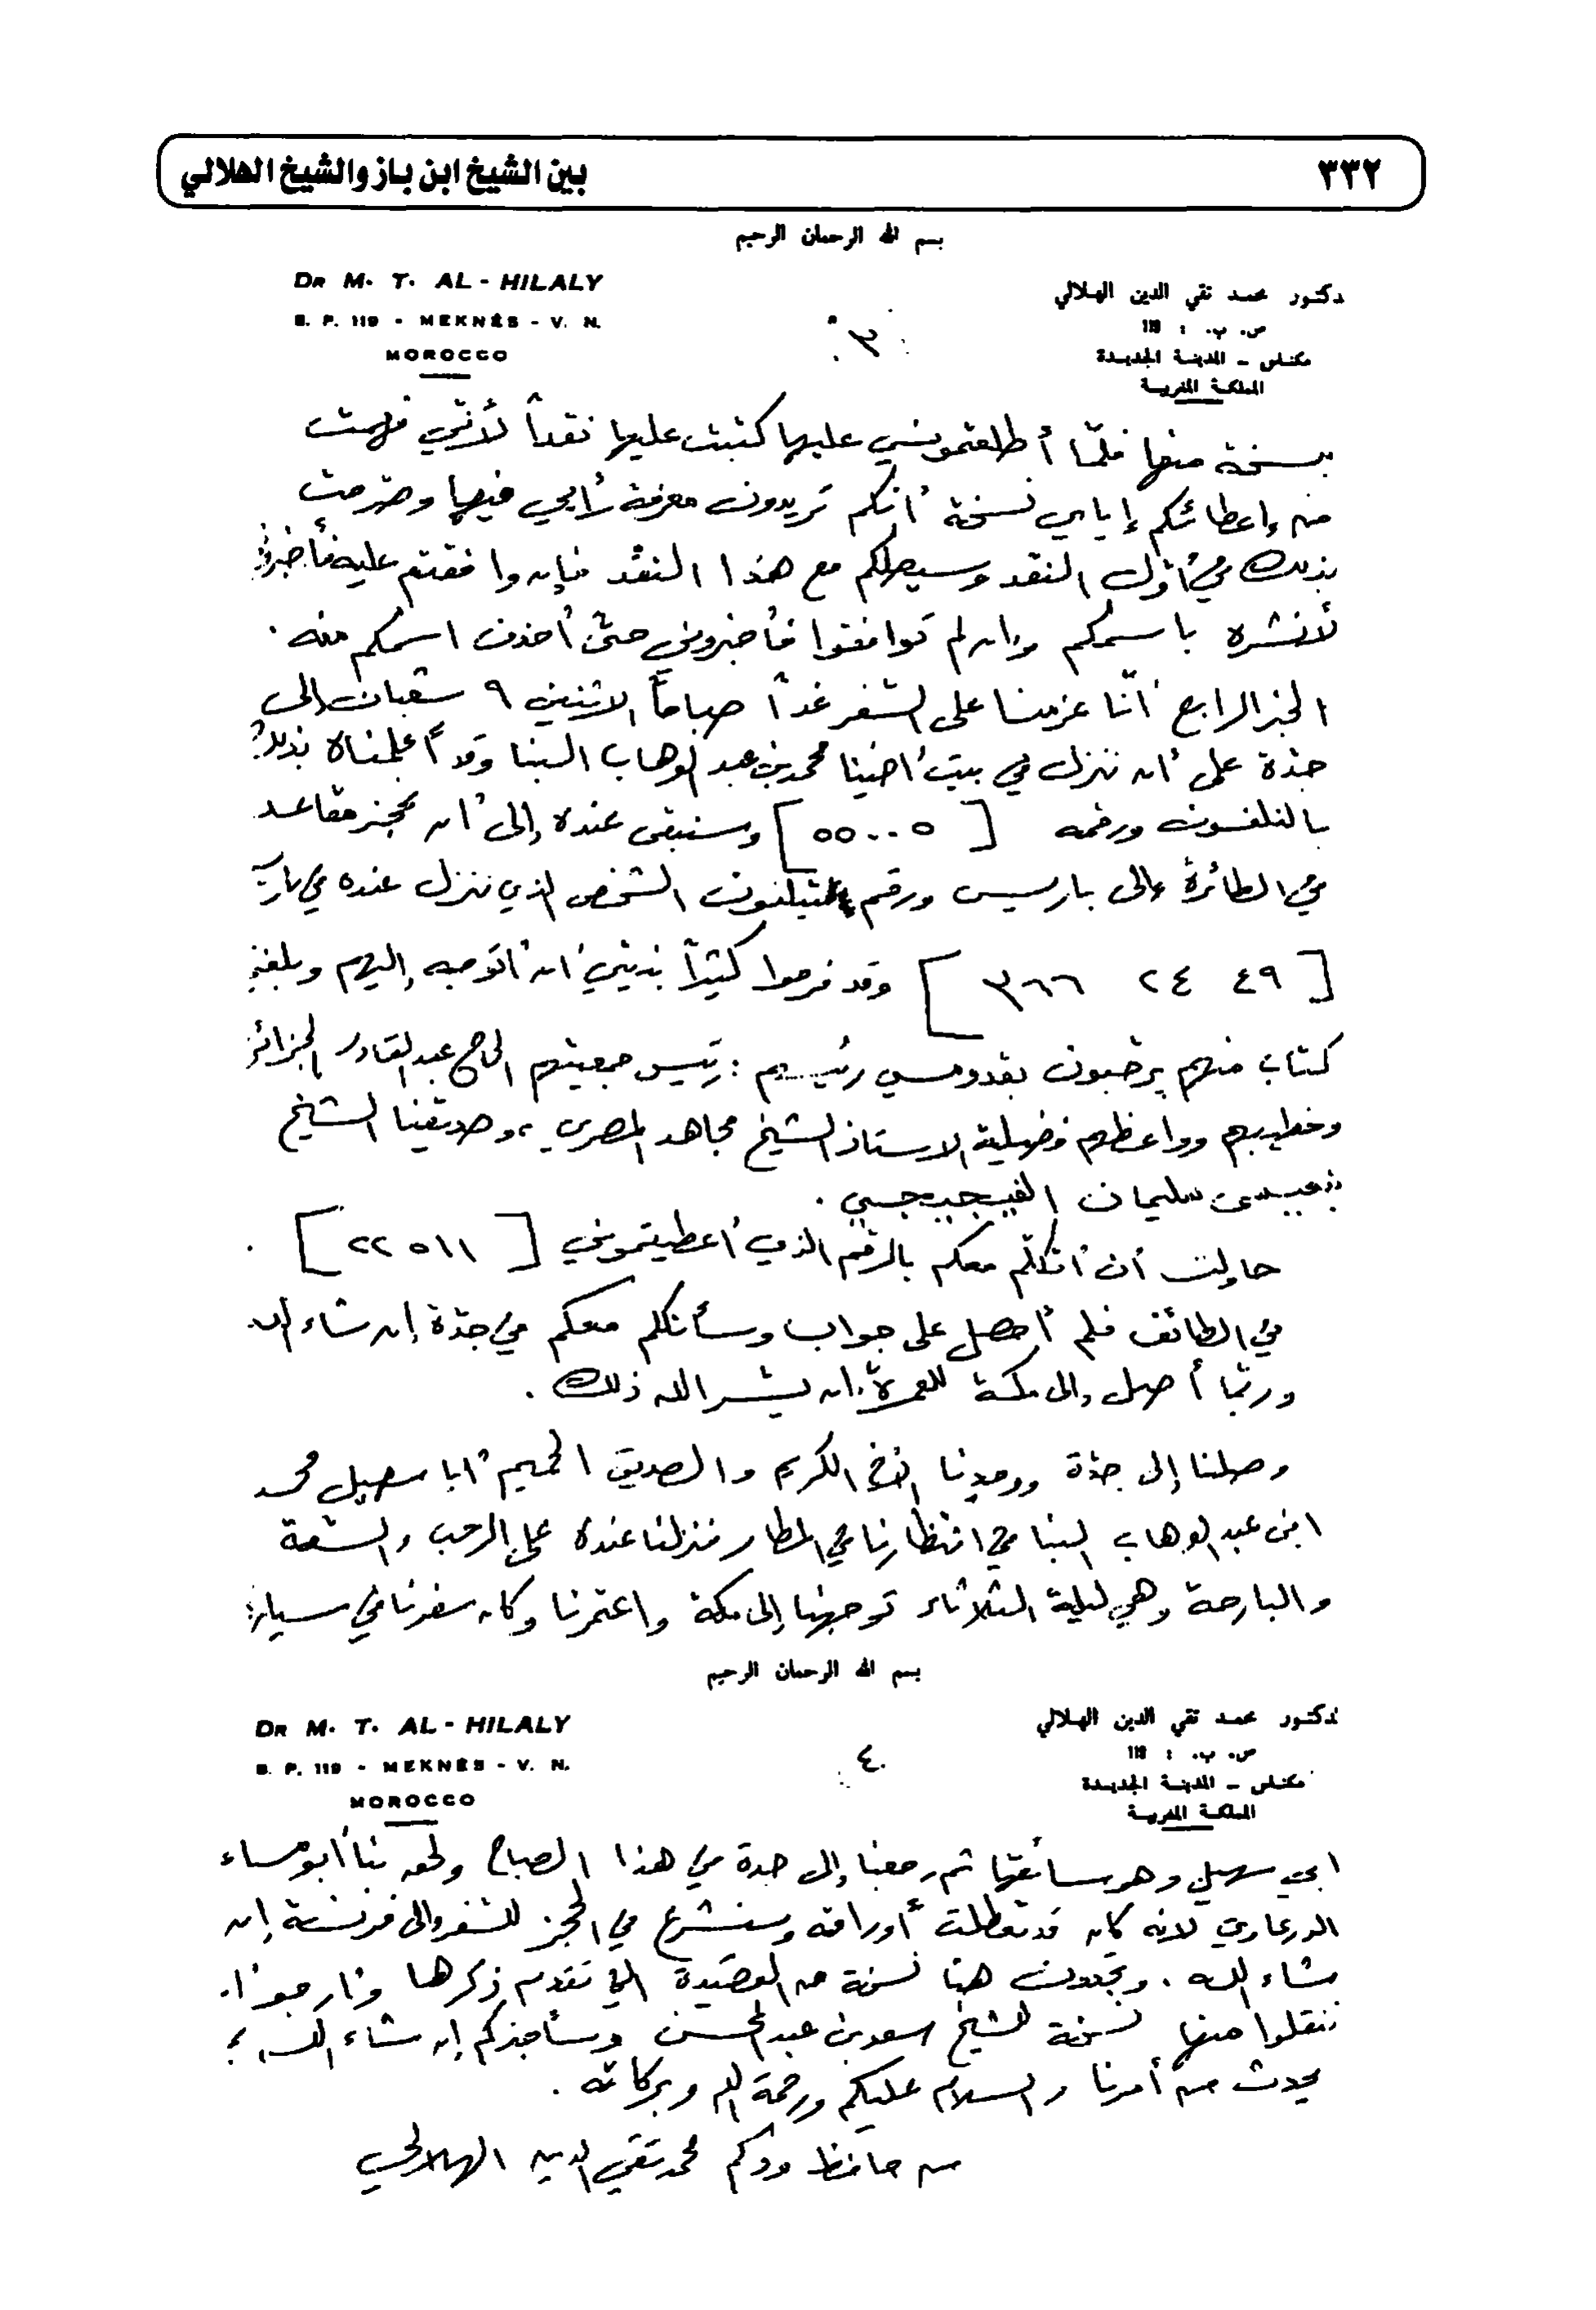 ٣٣٢
بين الشيخ ابن باز والشيخ الهلالي
بسم الله الرحمان الرحيم
دكتور محمد تقي الدين الهلالي
ص. ب. : 119
مكناس - المدينة الجديدة
المملكة المغربية
٣
DR M. T. AL - HILALY
B. P. 119 - MEKNÈS - V. N.
MOROCCO
بنسخة منها فلمّا أطلعتموني عليها كتبت عليها نقداً لأنّي فهمت
من إعطائكم إياي نسخة أنكم تريدون معرفة رأيي فيها وصرحت
بذلك في أوّل النقد وسيصلكم مع هذا النقد فإن وافقتم عليه فأخبروني
لأنشره باسمكم وإن لم توافقوا فأخبروني حتّى أحذف اسمكم منه .
الخبر الرابع أنّنا عزمنا على السّفر غداً صباحاً الاثنين ٩ شعبان إلى
جدّة على أن ننزل في بيت أخينا محمد بن عبد الوهاب البنا وقد أعلمناه بذلك
بالتلفون ورقمه [ ٥٥٠٠٥ ] وسنبقى عنده إلى أن نحجز مقاعد
في الطائرة إلى باريس ورقم تيلفون الشخص الذي ننزل عنده في باريس
[ ٤٩ ٢٤ ٣٦٦ ] وقد فرحوا كثيراً بنيتي أن أتوجه إليهم وبلغني
كتاب منهم يرحبون بقدومي رئيسهم : رئيس جمعيتهم الحاج عبد القادر الجزائري
وخطيبهم وواعظهم فضيلة الاستاذ الشيخ مجاهد المصري ، وصديقنا الشيخ
بنعيسى سليمان الفيجيجي .
حاولت أن أتكلّم معكم بالرقم الذي أعطيتموني [ ٢٢٥١١ ] .
في الطائف فلم أحصل على جواب وسأتكلم معكم في جدّة إن شاء الله
وربّما أصل إلى مكة للعمرة إن يسّر الله ذلك .
وصلنا إلى جدّة ووجدنا الأخ الكريم والصديق الحميم أبا سهيل محمد
ابن عبد الوهاب البنا في انتظارنا في المطار فنزلنا عنده على الرحب والسّعة
والبارحة وهي ليلة الثلاثاء توجهنا إلى مكة واعتمرنا وكان سفرنا في سيارة
بسم الله الرحمان الرحيم
دكتور محمد تقي الدين الهلالي
ص. ب. : 119
مكناس - المدينة الجديدة
المملكة المغربية
٤
DR M. T. AL - HILALY
B. P. 119 - MEKNÈS - V. N.
MOROCCO
ابي سهيل وهو سائقها ثم رجعنا إلى جدة في هذا الصباح ولحق بنا أبو مساء
الدرعاوي لانه كان قد تعطلت أوراقه وسنشرع في الحجز للسّفر إلى فرنسة إن
شاء الله . وتجدون هنا نسخة من القصيدة التي تقدم ذكرها وأرجو أن
تنقلوا منها نسخة للشيخ سعد بن عبد المحسن وسأخبركم إن شاء الله بما
يحدث من أمرنا والسلام عليكم ورحمة الله وبركاته .
من حافظ ودكم محمد تقي الدين الهلالي